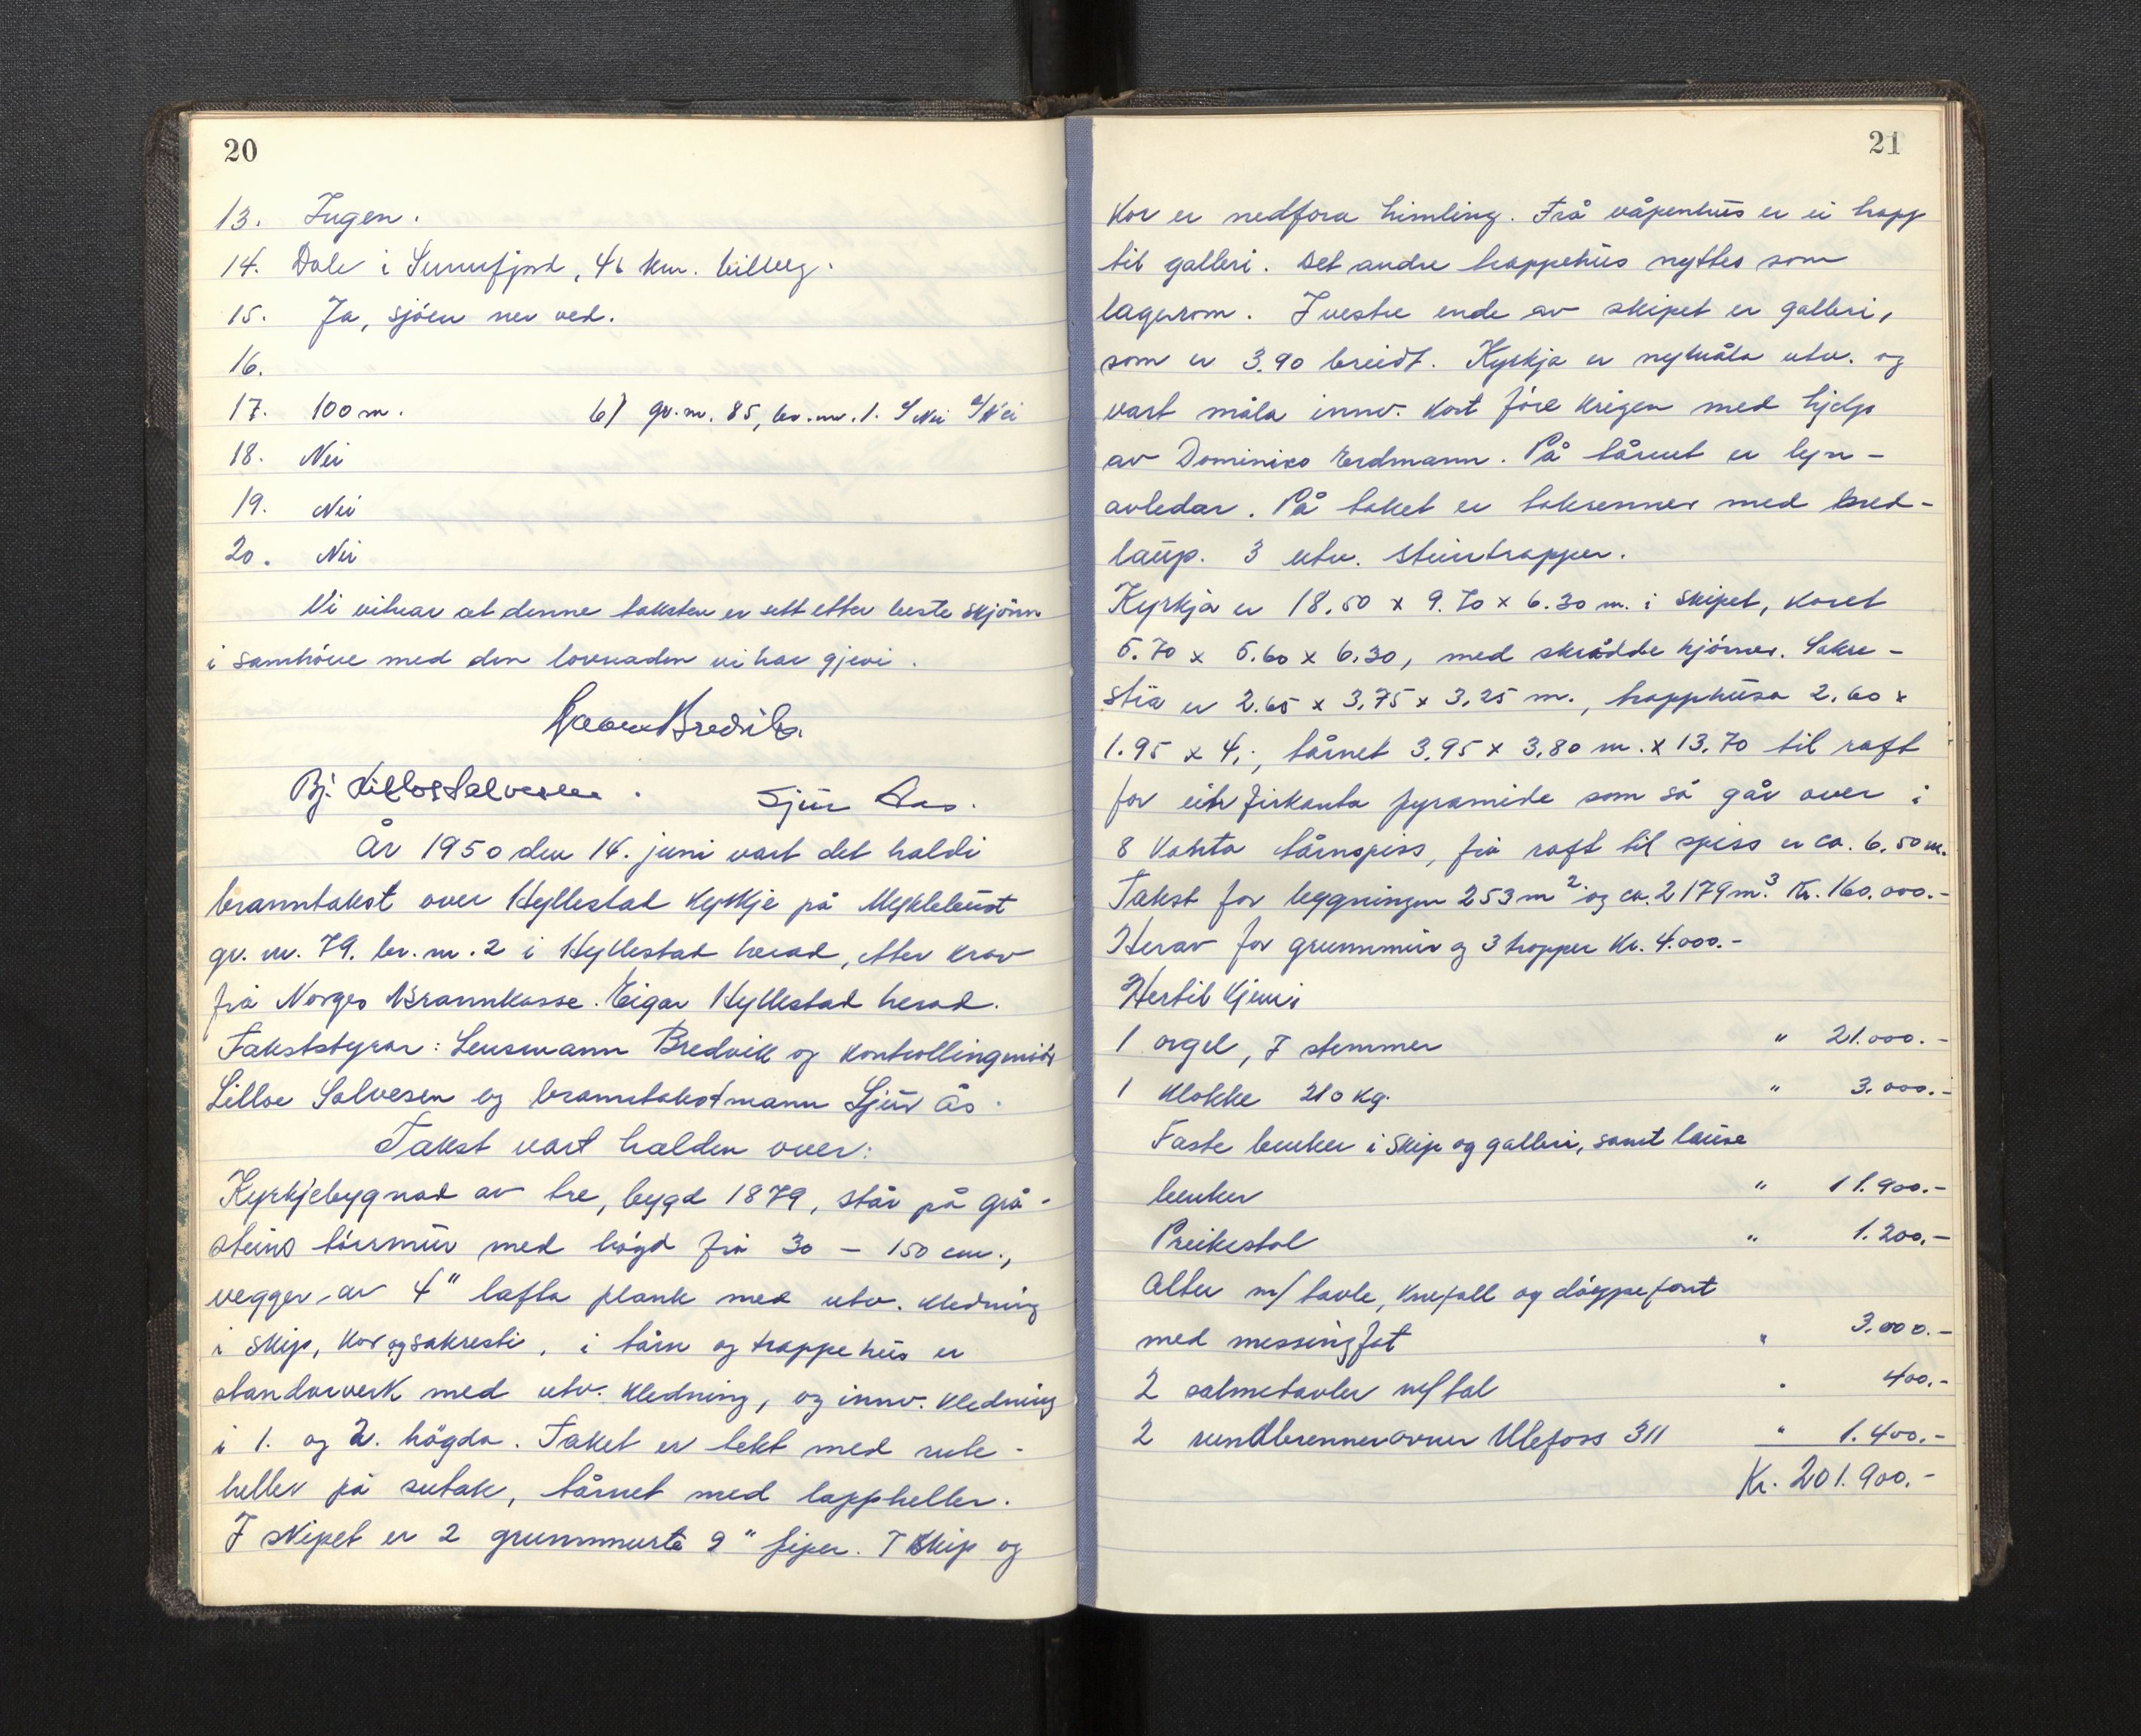 20
13. Ingen.
14. Dale i Sunnfjord, 46 km. bilveg.
15. Ja, sjöen nær ved.
16.
17. 100 m. b) gv. nr. 85, br. nr. 1. c/ Nei d/ Nei
18. Nei
19. Nei
20. Nei
Vi vitnar at denne taksten er sett etter beste skjönn
i samhöve med den lovnaden vi har gjevi.
Bredvik
Bj. Lilloe Salvesen. Sjur Aas.
År 1950 den 14. juni vart det haldi
branntakst over Hyllestad Kyrkje på Myklebust
gr. nr. 79. br. nr. 2 i Hyllestad herad, etter krav
frå Norges Brannkasse. Eigar Hyllestad herad.
Takststyrar: Lensmann Bredvik og kontrollingeniör
Lilloe Salvesen og branntakstmann Sjur Ås.
Takst vart halden over:
Kyrkjebygnad av tre, bygd 1879, står på grå-
steins törrmur med högd frå 30 - 150 cm.,
vegger av 4" lafta plank med utv. kledning
i skip, kor og sakresti, i tårn og trappehus er
standarverk med utv. kledning, og innv. kledning
i 1. og 2. högda. Taket er tekt med rute-
heller på sutak, tårnet med lappheller.
I skipet er 2 grunnmurte 9" piper. I skip og
21
kor er nedfora himling. Frå våpenhus er ei trapp
til galleri. Det andre trappehus nyttes som
lagerrom. I vestre ende av skipet er galleri,
som er 3.90 breidt. Kyrkja er nymåla utv. og
vart måla innv. kort före krigen med hjelp
av Dominico Erdmann. På tårnet er lyn-
avledar. På taket er takrenner med ned-
laup. 3 utv. steintrapper.
Kyrkja er 18.50 x 9.70 x 6.30 m. i skipet, koret
5.70 x 5.60 x 6.30, med skrådde hjörner. Sakre-
stia er 2.65 x 3.75 x 3.25 m., trapphusa 2.60 x
1.95 x 4.-, tårnet 3.95 x 3.80 m. x 13.70 til raft
for ein firkanta pyramide som så går over i
8 kanta tårnspiss, frå raft til spiss er ca. 6.50 m.
Takst for byggningen 253 m² og ca. 2179 m³. Kr. 160.000.-
Herav for grunnmur og 3 trapper Kr. 4.000.-
Hertil kjem:
1 orgel, 7 stemmer " 21.000.-
1 klokke 210 kg. " 3.000.-
Faste benker i skip og galleri, samt lause
benker " 11.900.-
Preikestol " 1.200.-
Alter m/ tavle, knefall og döypefont
med messingfat " 3.000.-
2 salmetavler m/ tal " 400.-
2 rundbrennerovner Ulefoss 311 " 1.400.-
Kr. 201.900.-